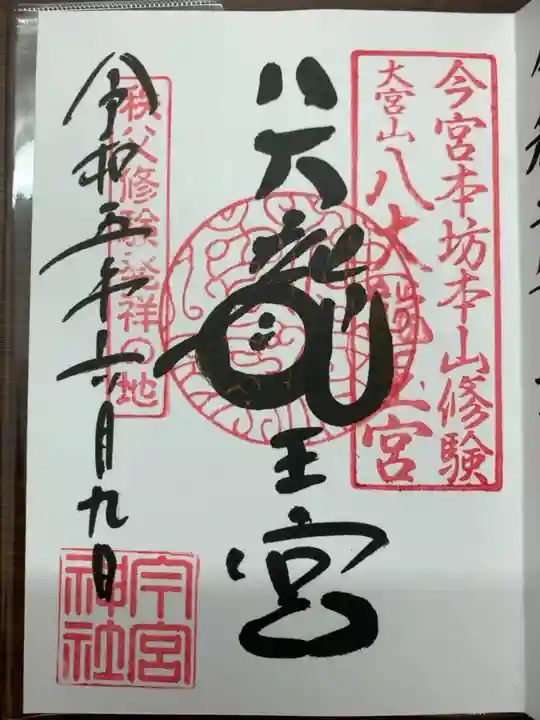 今宮本坊本山修験
大宮山八大龍王宮
八大龍王宮
秩父修験発祥の地
令和五年十一月九日
今宮神社